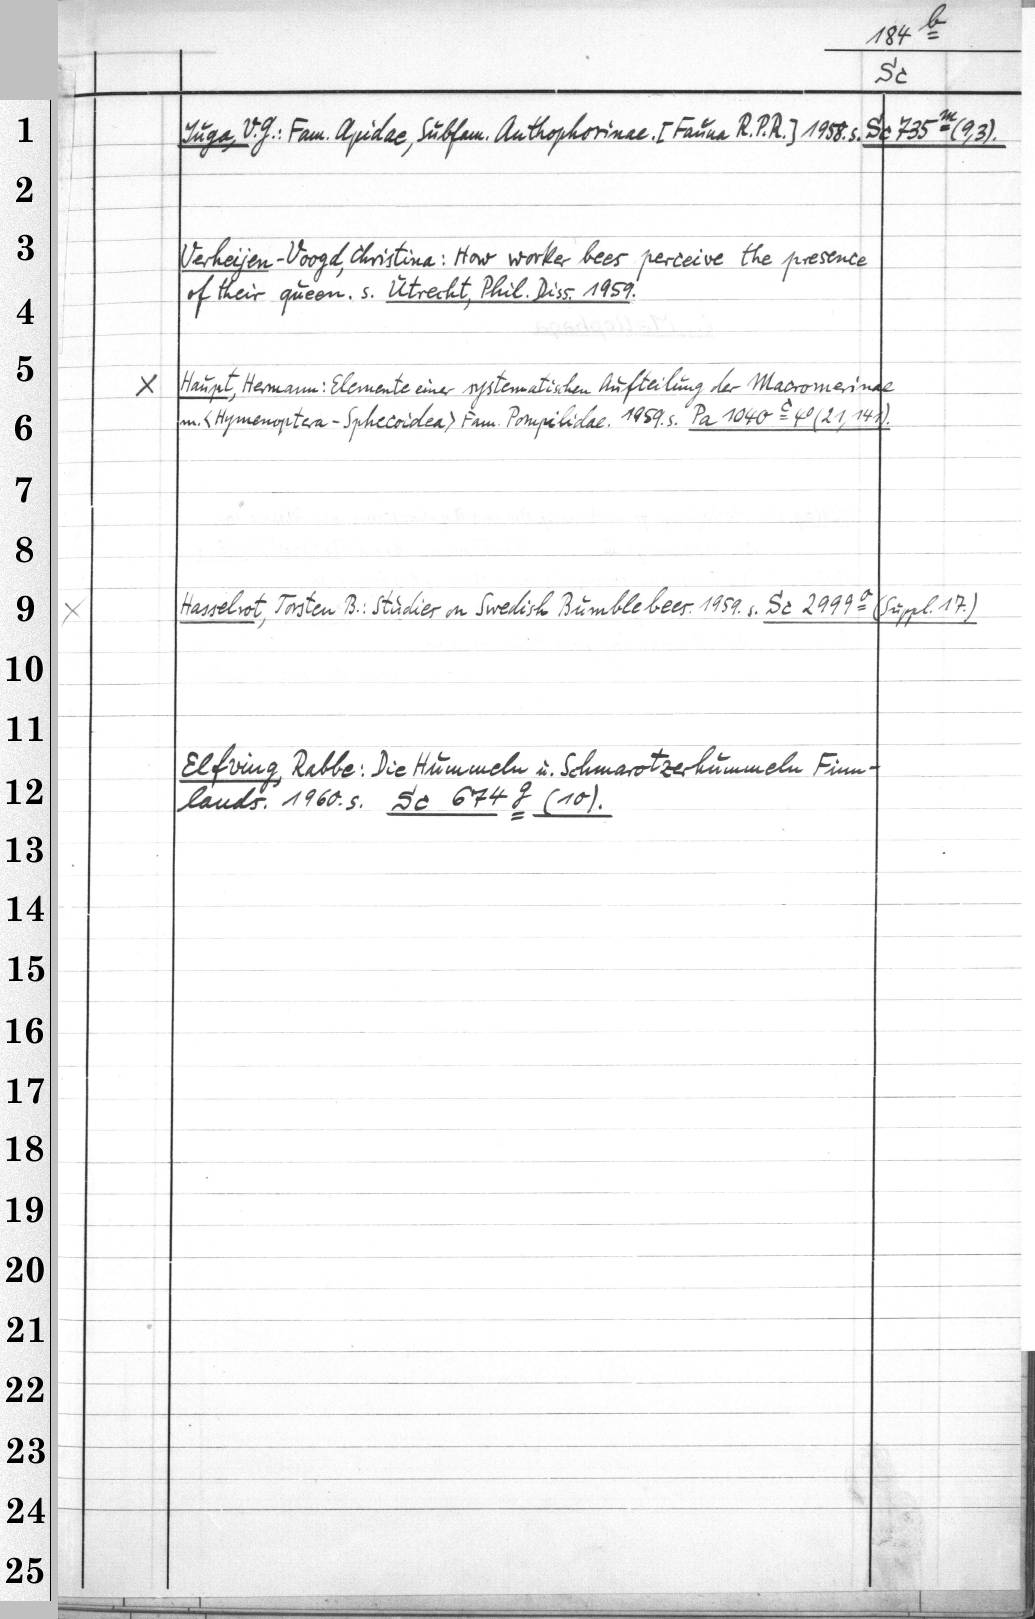 184 b
Sc
1
Iuga, V.G.: Fam. Apidae, Subfam. Anthophorinae. [Fauna R.P.R.] 1958. s. Sc 735 m (9,3).
2
3
Verheijen-Voogd, Christina: How worker bees perceive the presence
of their queen. s. Utrecht, Phil. Diss. 1959.
4
5
× Haupt, Hermann: Elemente einer systematischen Aufteilung der Macromerinae
6
m. <Hymenoptera - Sphecoidea> Fam. Pompilidae. 1959. s. Pa 1040 c 4° (21,141).
7
8
9
× Hasselrot, Torsten B.: Studies on Swedish Bumblebees. 1959. s. Sc 2999 a (Suppl. 17.)
10
11
Elfving, Rabbe: Die Hummeln u. Schmarotzerhummeln Finn-
12
lands. 1960. s. Sc 674 g (10).
13
14
15
16
17
18
19
20
21
22
23
24
25